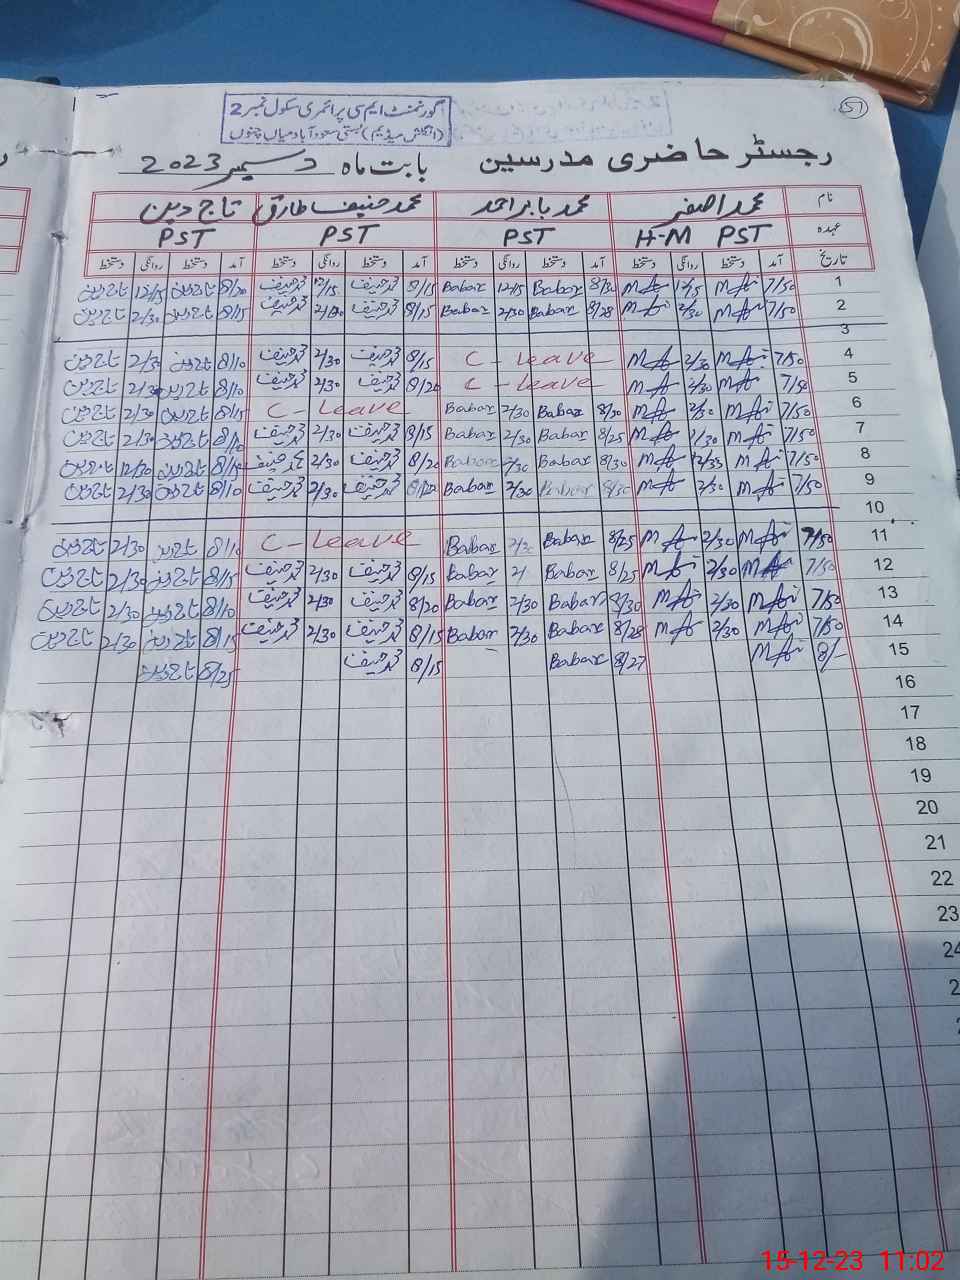 51
گورنمنٹ ایم سی پرائمری سکول نمبر 2
(انگلش میڈیم) بستی سعودآباد میاں چنوں
رجسٹر حاضری مدرسین بابت ماہ دسمبر 2023
نام محمد اصغر محمد بابر احمد محمد حنیف طارق تاج دین
عہدہ H-M PST PST PST PST
تاریخ آمد دستخط روانگی دستخط آمد دستخط روانگی دستخط آمد دستخط روانگی دستخط آمد دستخط روانگی دستخط
1 7/50 12/15 8/30 Babar 12/15 Babar 8/15 محمد حنیف 12/15 محمد حنیف 8/20 تاج دین 12/15 تاج دین
2 7/50 2/30 8/28 Babar 2/30 Babar 8/15 محمد حنیف 2/30 محمد حنیف 8/15 تاج دین 2/30 تاج دین
3
4 7/50 2/30 C - Leave 8/15 محمد حنیف 2/30 محمد حنیف 8/10 تاج دین 2/30 تاج دین
5 7/50 2/30 C - Leave 8/20 محمد حنیف 2/30 محمد حنیف 8/10 تاج دین 2/30 تاج دین
6 7/50 2/30 8/30 Babar 2/30 Babar C - Leave 8/15 تاج دین 2/30 تاج دین
7 7/50 2/30 8/25 Babar 2/30 Babar 8/15 محمد حنیف 2/30 محمد حنیف 8/10 تاج دین 2/30 تاج دین
8 7/50 8/30 Babar Babar 8/20 محمد حنیف 2/30 محمد حنیف تاج دین 12/30 تاج دین
9 7/50 2/30 8/30 Babar 2/30 Babar 8/20 محمد حنیف 2/30 محمد حنیف 8/10 تاج دین 2/30 تاج دین
10
11 7/50 2/30 8/25 Babar 2/30 Babar C - Leave 8/10 تاج دین 2/30 تاج دین
12 7/50 2/30 8/25 Babar 2/ Babar 8/15 محمد حنیف 2/30 محمد حنیف 8/15 تاج دین 2/30 تاج دین
13 7/50 2/30 8/30 Babar 2/30 Babar 8/20 محمد حنیف 2/30 محمد حنیف 8/10 تاج دین 2/30 تاج دین
14 7/50 2/30 8/28 Babar 2/30 Babar 8/15 محمد حنیف 2/30 محمد حنیف 8/15 تاج دین 2/30 تاج دین
15 8/- 8/27 Babar 8/15 محمد حنیف 8/25 تاج دین
16
17
18
19
20
21
22
23
24
15-12-23 11:02